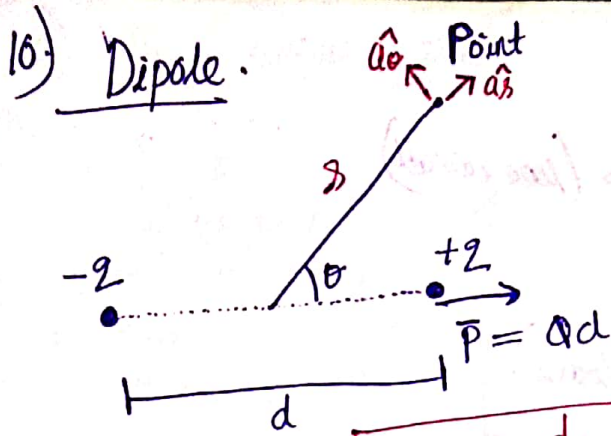 10) Dipole.
âθ Point
âr
r
-q θ +q
P̅ = Qd
d